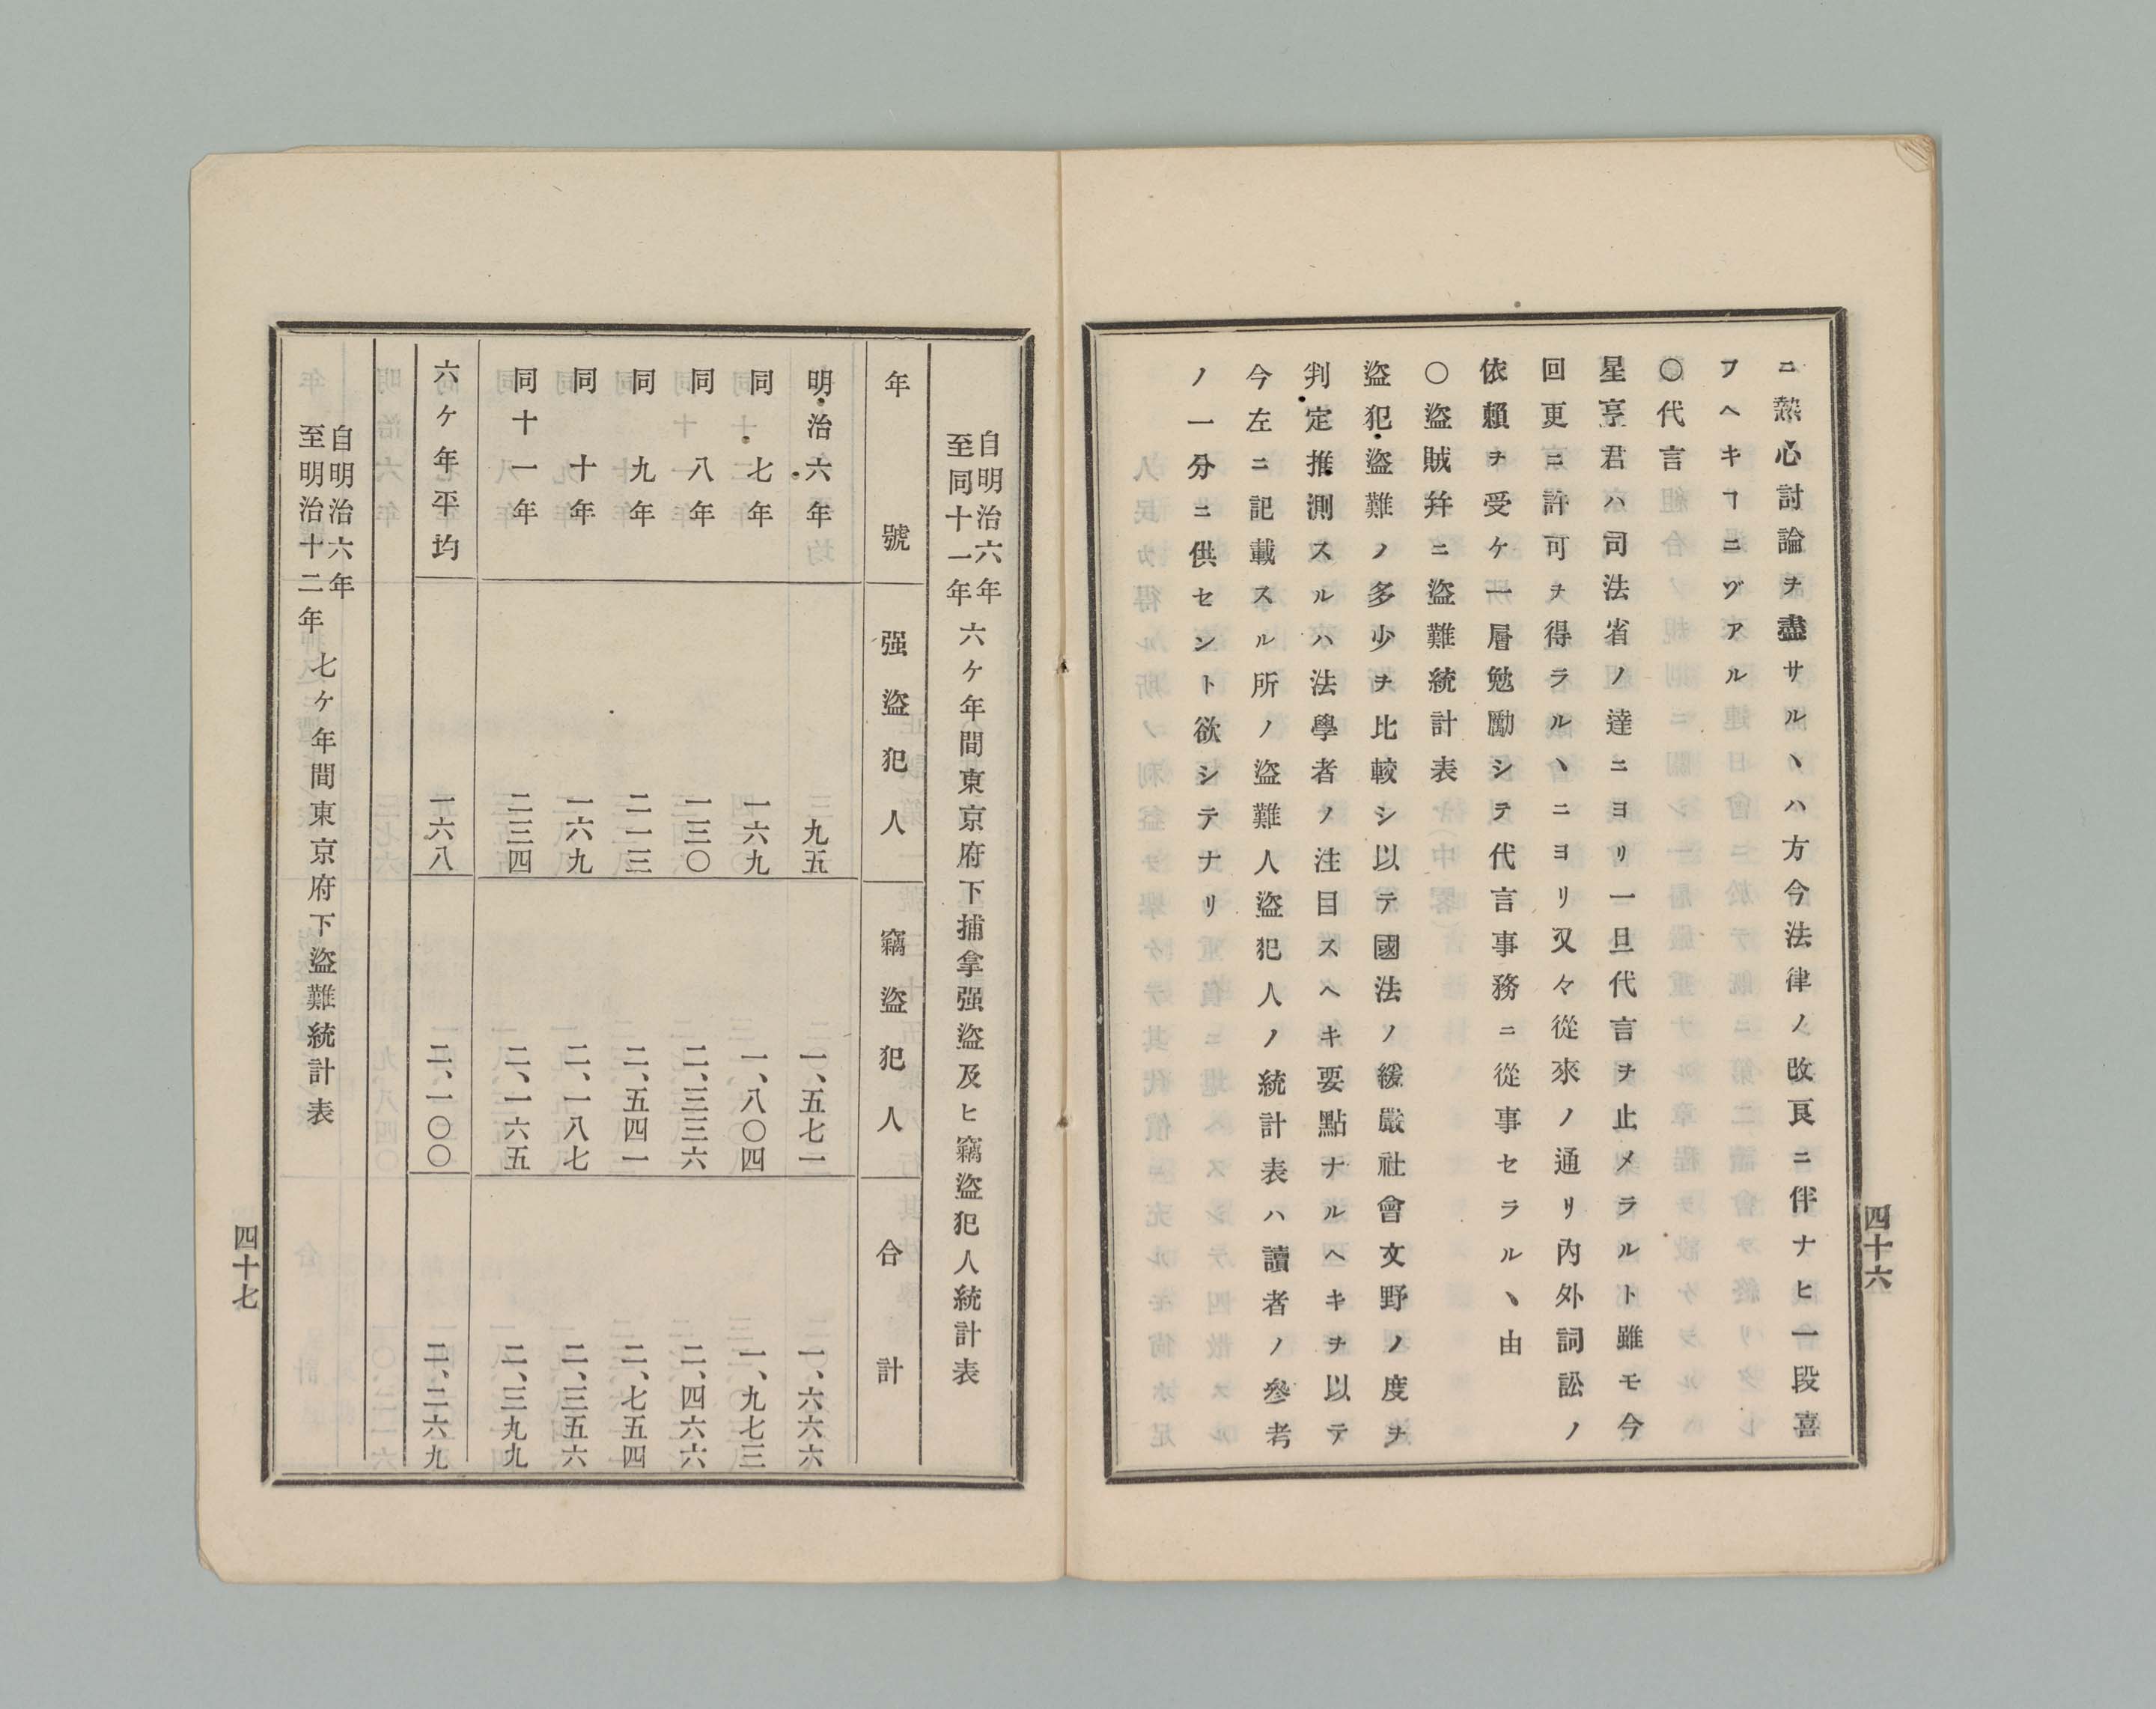 ニ熱心討論ヲ盡サルヽハ方今法律ノ改良ニ伴ナヒ一段喜
フヘキヿニヅアル
〇代言
星亨君ハ司法省ノ達ニヨリ一旦代言ヲ止メラルト雖モ今
回更ニ許可ヲ得ラルヽニヨリ又々從來ノ通リ內外詞訟ノ
依賴ヲ受ケ一層勉勵シテ代言事務ニ從事セラルヽ由
〇盜賊幷ニ盜難統計表
盜犯盜難ノ多少ヲ比較シ以テ國法ノ緩嚴社會文野ノ度ヲ
判定推測スルハ法學者ノ注目スヘキ要點ナルヘキヲ以テ
今左ニ記載スル所ノ盜難人盜犯人ノ統計表ハ讀者ノ參考
ノ一分ニ供セント欲シテナリ
四十六
自明治六年
至同十一年
六ヶ年間東京府下捕拿强盜及ヒ竊盜犯人統計表
年號 强盜犯人 竊盜犯人 合計
明治六年 九五 一、五七一 一、六六六
同七年 一六九 一、八〇四 一、九七三
同八年 一三〇 二、三三六 二、四六六
同九年 二一三 二、五四一 二、七五四
同十年 一六九 二、一八七 二、三五六
同十一年 二三四 二、一六五 二、三九九
六ヶ年平均 一六八 二、一〇〇 二、二六九
自明治六年
至明治十二年
七ヶ年間東京府下盜難統計表
四十七